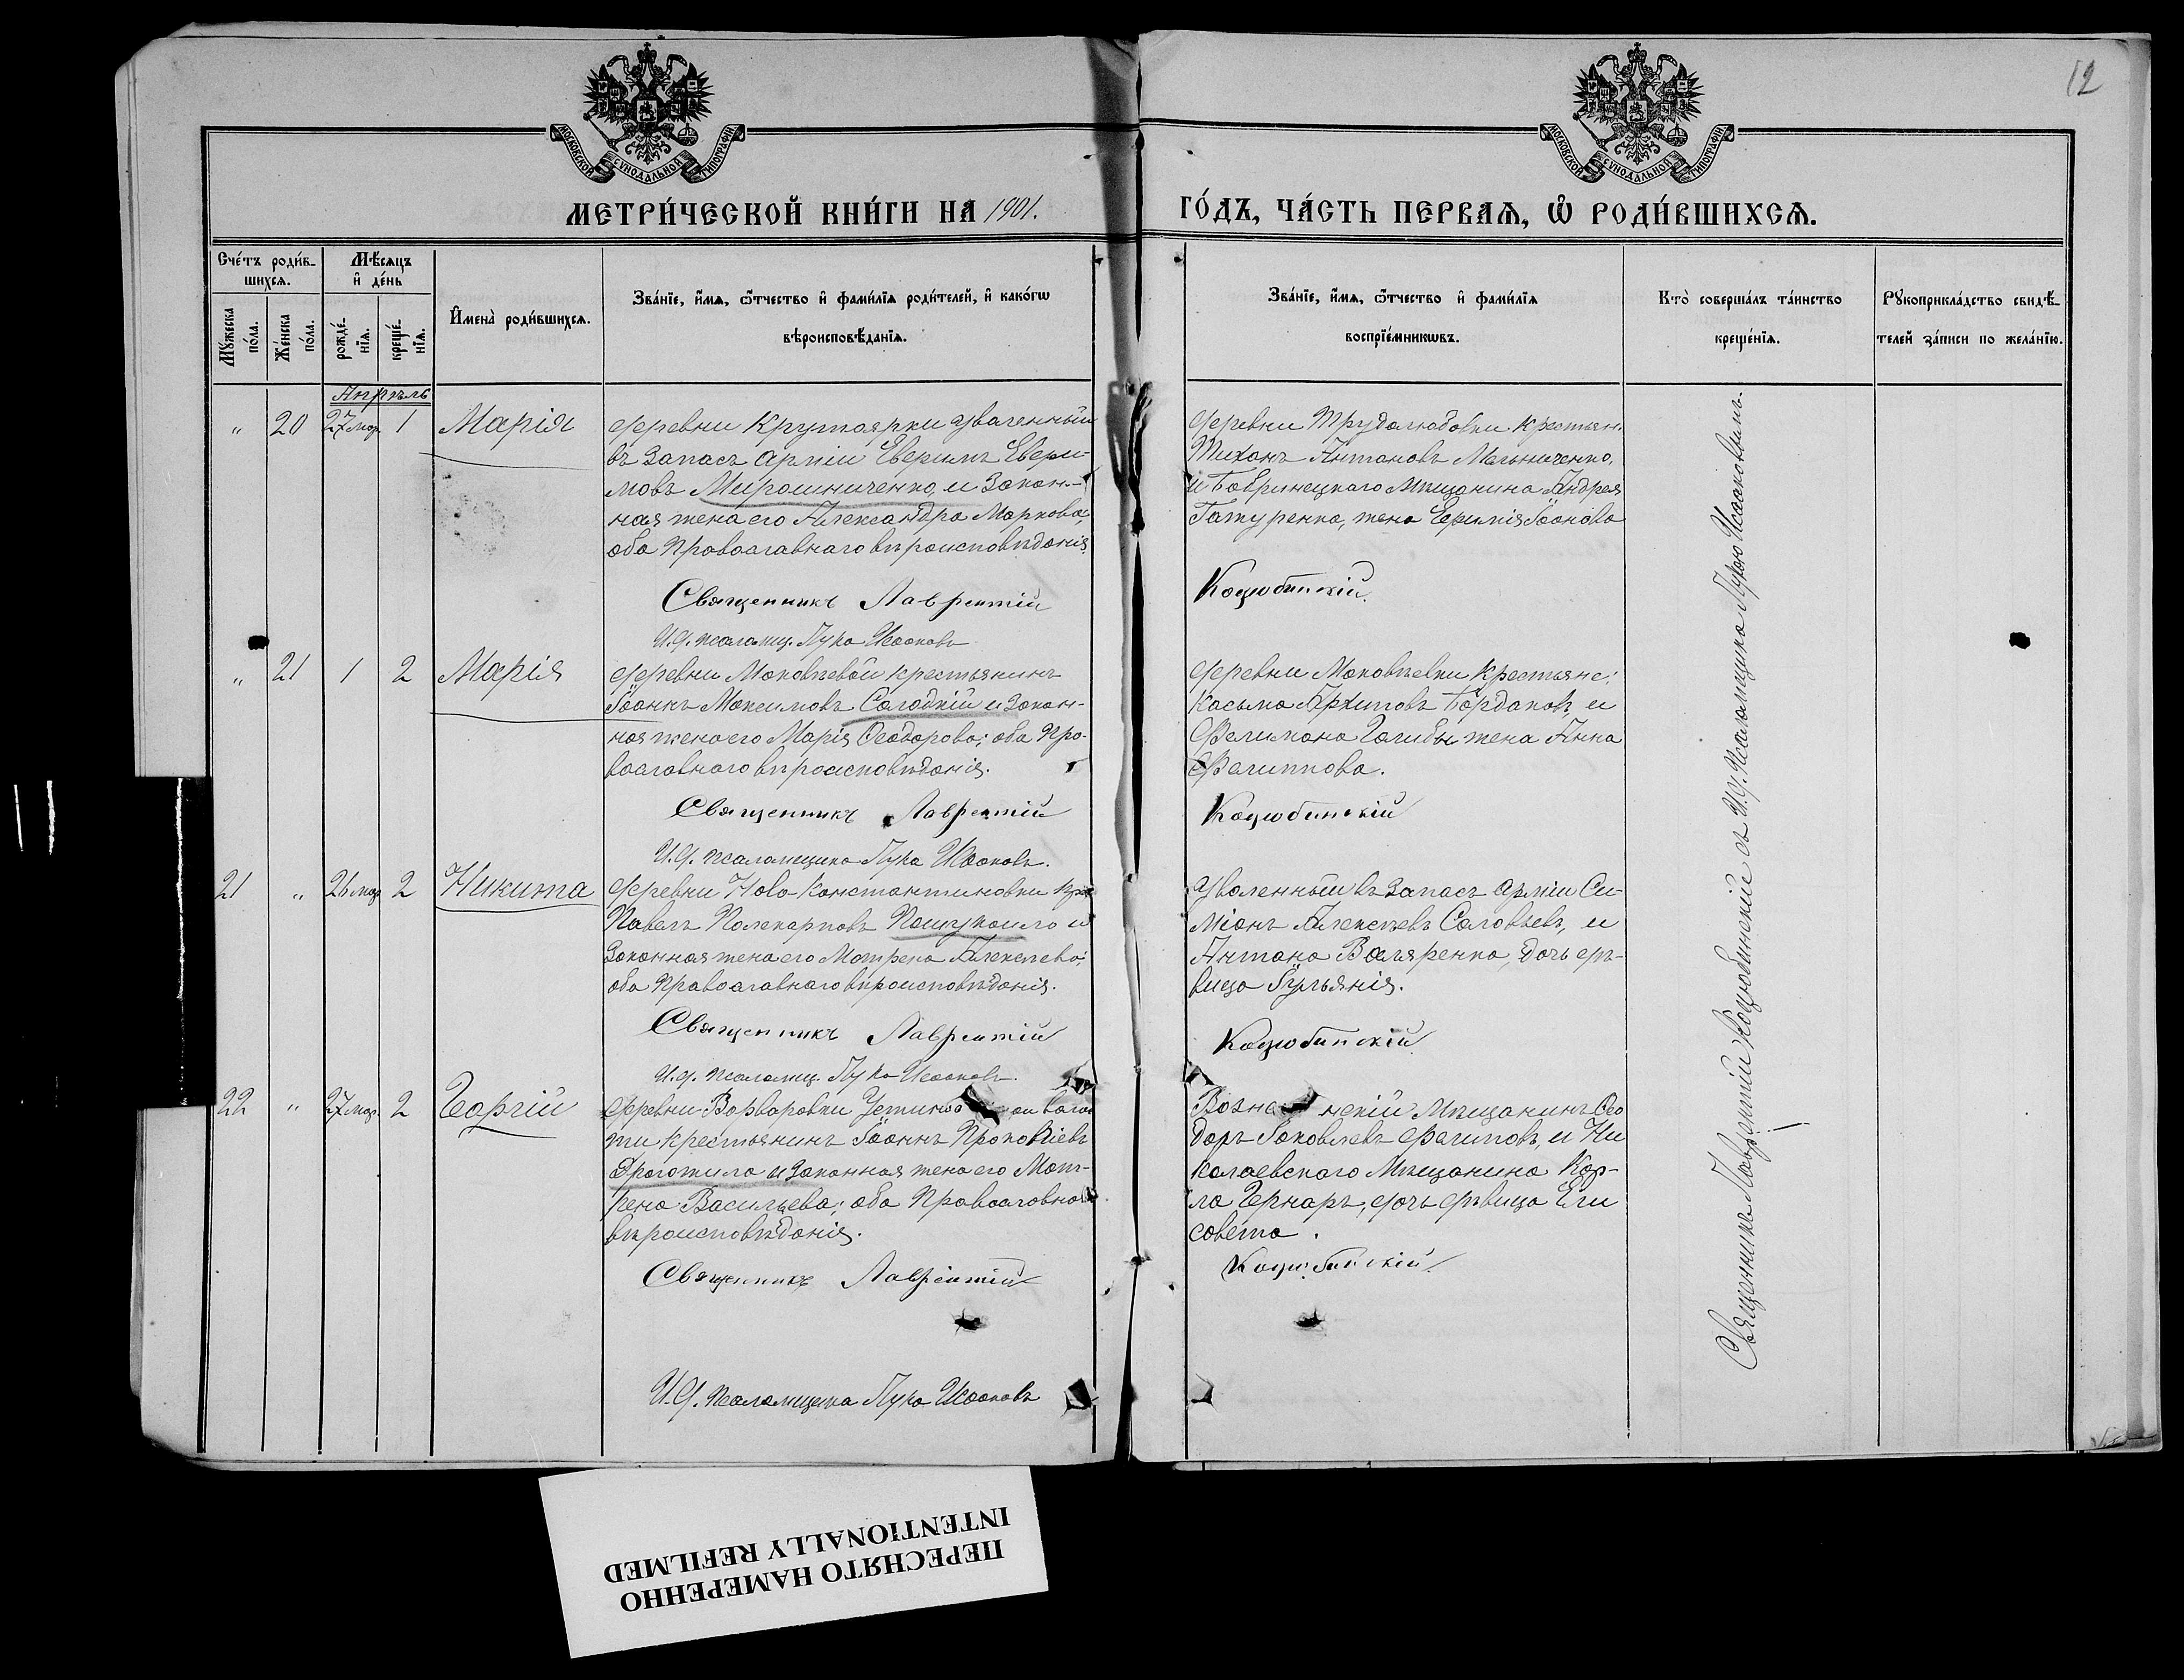 12
МОСКОВСКОЙ СѴНОДАЛЬНОЙ ТИПОГРАФІИ
МОСКОВСКОЙ СѴНОДАЛЬНОЙ ТИПОГРАФІИ
МЕТРИ́ЧЕСКОЙ КНИ́ГИ НА 1901. ГО́ДЪ, ЧА́СТЬ ПЕРВАѦ, Ѡ҆ РОДИ́ВШИХСѦ.
Сче́тъ роди́в-
шихсѧ.
Мꙋ́жеска
по́ла.
Же́нска
по́ла.
Мѣ́сѧцъ
и҆ де́нь
рожде́-
нїѧ.
креще́-
нїѧ.
И҆мена̀ роди́вшихсѧ.
Зва́нїе, и҆́мѧ, ѻ҆́тчество и҆ фами́лїѧ роди́телей, и҆ како́гѡ
вѣроисповѣ́данїѧ.
Зва́нїе, и҆́мѧ, ѻ҆́тчество и҆ фами́лїѧ
воспрїе́мникѡвъ.
Кто̀ соверша́лъ та́инство
креще́нїѧ.
Рꙋкоприкла́дство свидѣ́-
телей за́писи по жела́нїю.
Апрѣль
„ 20 27 мар. 1 Марія
деревни Крутоярки уволенный
въ запасъ арміи Евфимъ Евфи-
мовъ Мирошниченко, и закон-
ная жена его Александра Маркова;
оба Православнаго вѣроисповѣданія.
Священникъ Лаврентій
И.д. псаломщ. Лука Исааковъ
деревни Трудолюбовки крестьян.
Тихонъ Антоновъ Мельниченко,
и Бобринецкаго мѣщанина Андрея
жена Ефимія Іоанова
Коцюбинскій.
„ 21 1 2 Марія
деревни Маковѣевой крестьянинъ
Іоаннъ Максимовъ Солодкій и закон-
ная жена его Марія Ѳеодорова; оба Пра-
вославнаго вѣроисповѣданія.
Священникъ Лаврентій
И.д. псаломщика Лука Исааковъ.
деревни Маковѣевки крестьяне:
Касьма Архиповъ Бордаковъ, и
жена Анна
Филиппова.
Коцюбинскій
21 „ 26 мар. 2 Никита
деревни Ново-Константиновки кре
Павелъ Поликарповъ и
законная жена его Матрена Алексѣева;
оба Православнаго вѣроисповѣданія.
Священникъ Лаврентій
И.д. псаломщ. Лука Исааковъ.
Уволенный въ запасъ арміи Си-
міонъ Алексѣевъ Соловьевъ, и
Антона дочь дѣ-
вица Іульянія.
Коцюбинскій
22 „ 27 мар. 2 Георгій
деревни Варваровки воло
сти крестьянинъ Іоаннъ Прокопіевъ
и законная жена его Мат-
рена Васильева; оба Православна
вѣроисповѣданія.
Священникъ Лаврентій
И.д. псаломщика Лука Исааковъ
Возне нскій мѣщанинъ Ѳео
доръ Іаковлевъ Филиповъ, и Ни
колаевскаго мѣщанина Кар-
ла Чернаръ, дочь дѣвица Ели
савета.
Коцюбинскій
Священникъ Лаврентій Коцюбинскій съ И.д. псаломщика Лукою Исааковымъ.
ПЕРЕСНЯТО НАМЕРЕННО
INTENTIONALLY REFILMED